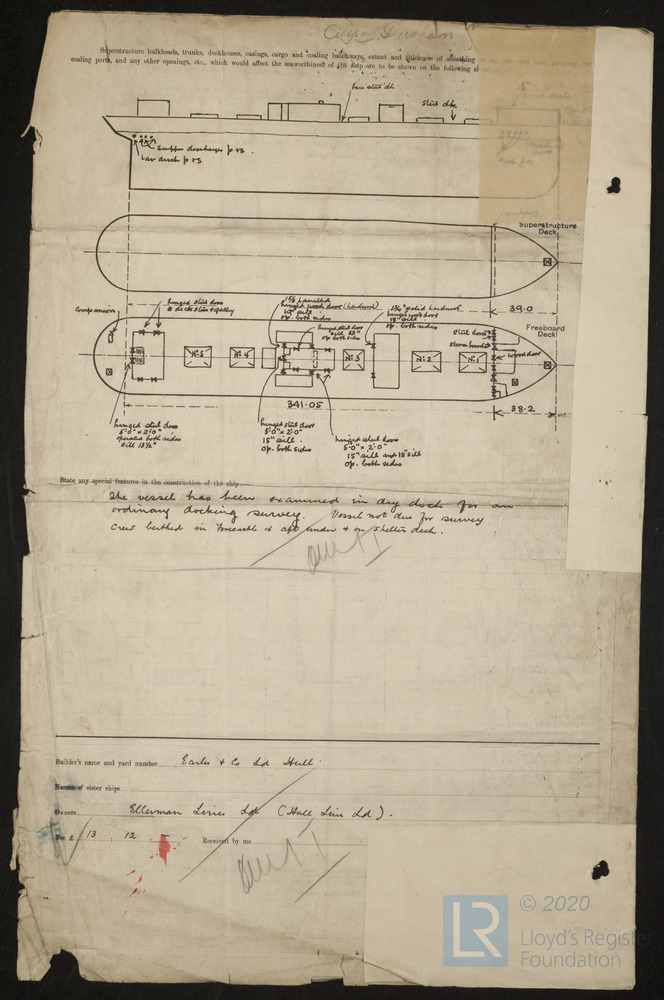 City of Durham
Superstructure bulkheads, trunks, deckhouses, casings, cargo and coaling hatchways, extent and thickness of sheathing
coaling ports, and any other openings, etc., which would affect the seaworthiness of the ship are to be shown on the following
bare steel dk
Steel dks
Scupper discharges p + s
Lav disch p + s
Superstructure
Deck.
39.0
Companion
hinged steel door
to decks store & galley
1 5/8 panelled
hinged wood door (hardwood)
op. both sides
hinged steel door
op both sides
solid hardwood
hinged wood door
18" sill
op. both sides
Freeboard
Deck.
steel doors
wood door
No 5
No 4
No 3
No 2
No 1
341.05
38.2
hinged steel door
5'-0" x 2'-0"
operated both sides
sill 13½"
hinged steel door
5'-0" x 2'-0"
15" sill
op. both sides
hinged steel door
5'-0" x 2'-0"
15" sill and 18" sill
op. both sides
State any special features in the construction of the ship :—
The vessel has been examined in dry dock for an
ordinary docking survey. Vessel not due for survey
Crew berthed in Forecastle & aft under & on shelter deck.
Builder's name and yard number Earles & Co Ld Hull.
Names of sister ships
Owners Ellerman Lines Ld (Hall Line Ld).
Fee £ 13 . 12 . –
Received by me
LR
© 2020
Lloyd's Register
Foundation